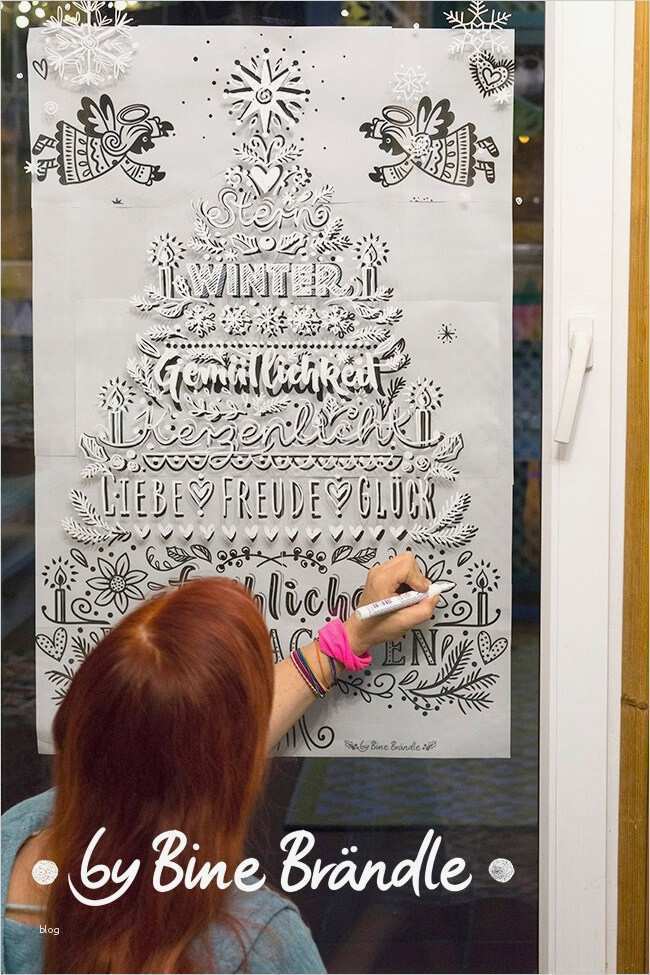 Stern
WINTER
Gemütlichkeit
Kerzenlicht
LIEBE FREUDE GLÜCK
by Bine Brändle
by Bine Brändle
blog